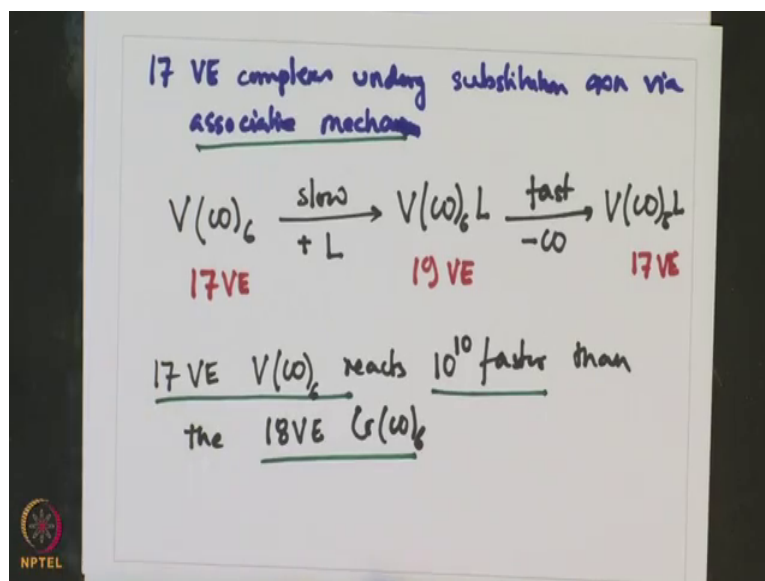 17 VE complexes undergo substitution rxn via
associative mechanism
V(CO)6 slow + L → V(CO)6L fast -CO → V(CO)5L
17VE 19VE 17VE
17VE V(CO)6 reacts 10^10 faster than
the 18VE Cr(CO)6
NPTEL